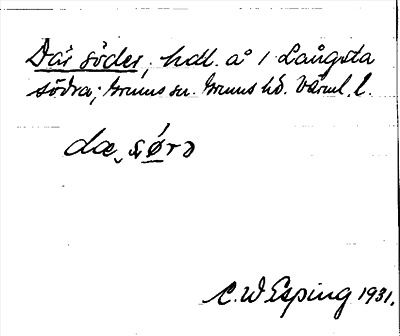 Där söder, hdl. å 1 Långsta
södra; Grums sn. Grums hd. Värml. l.
dæ sørɔ
C. W Esping 1931.